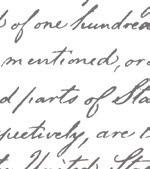 of one hundred
mentioned, or
d parts of Sta
pectively, are
United Sta